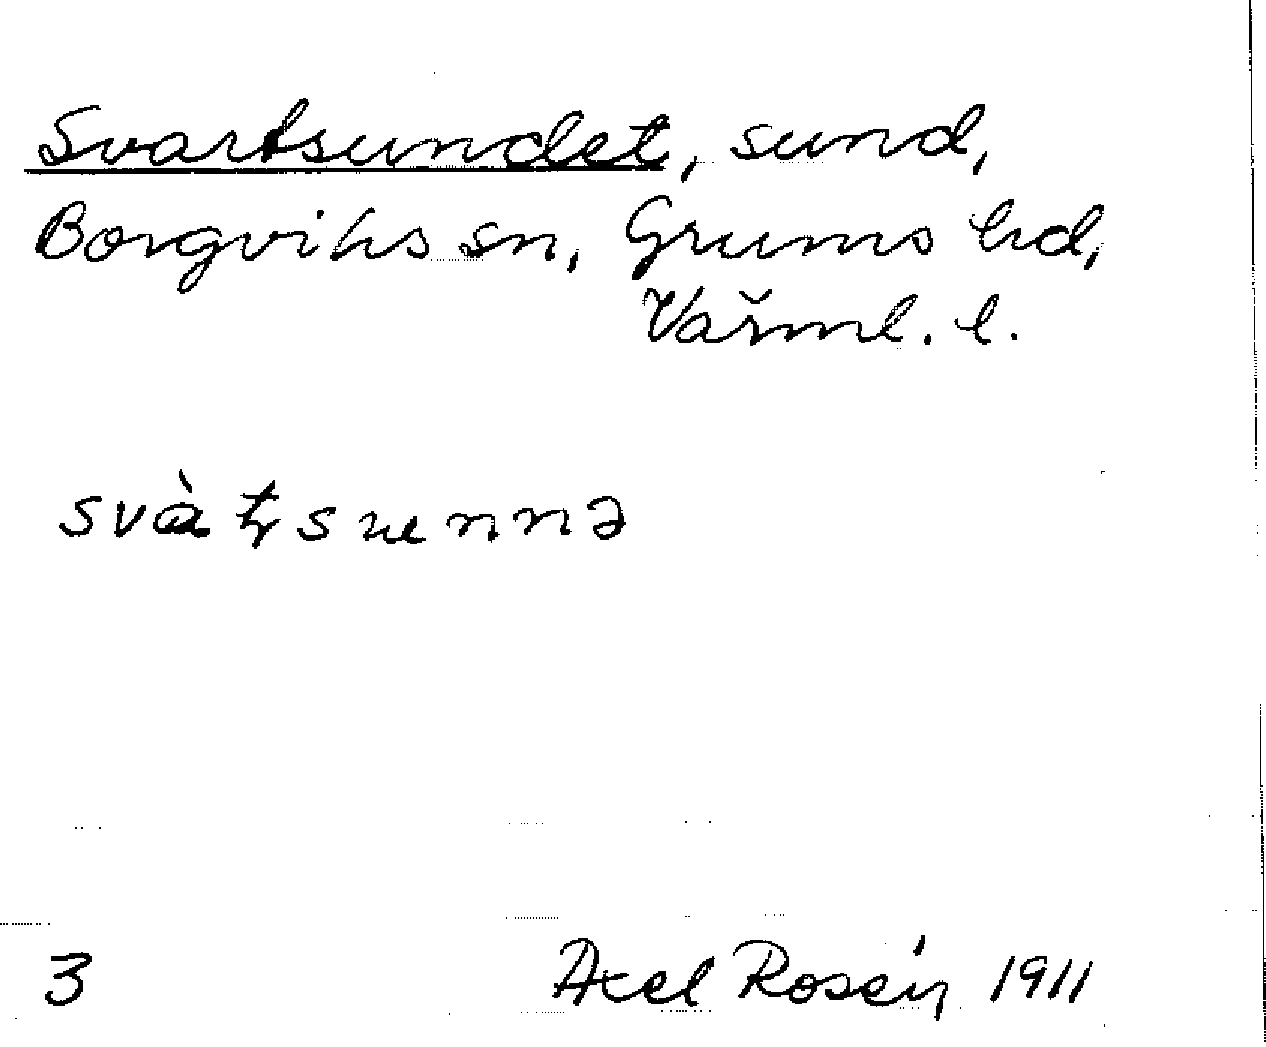 Svartsundet, sund,
Borgviks sn, Grums hd,
Värml. l.
svàʈsunnə
3 Axel Rosén 1911